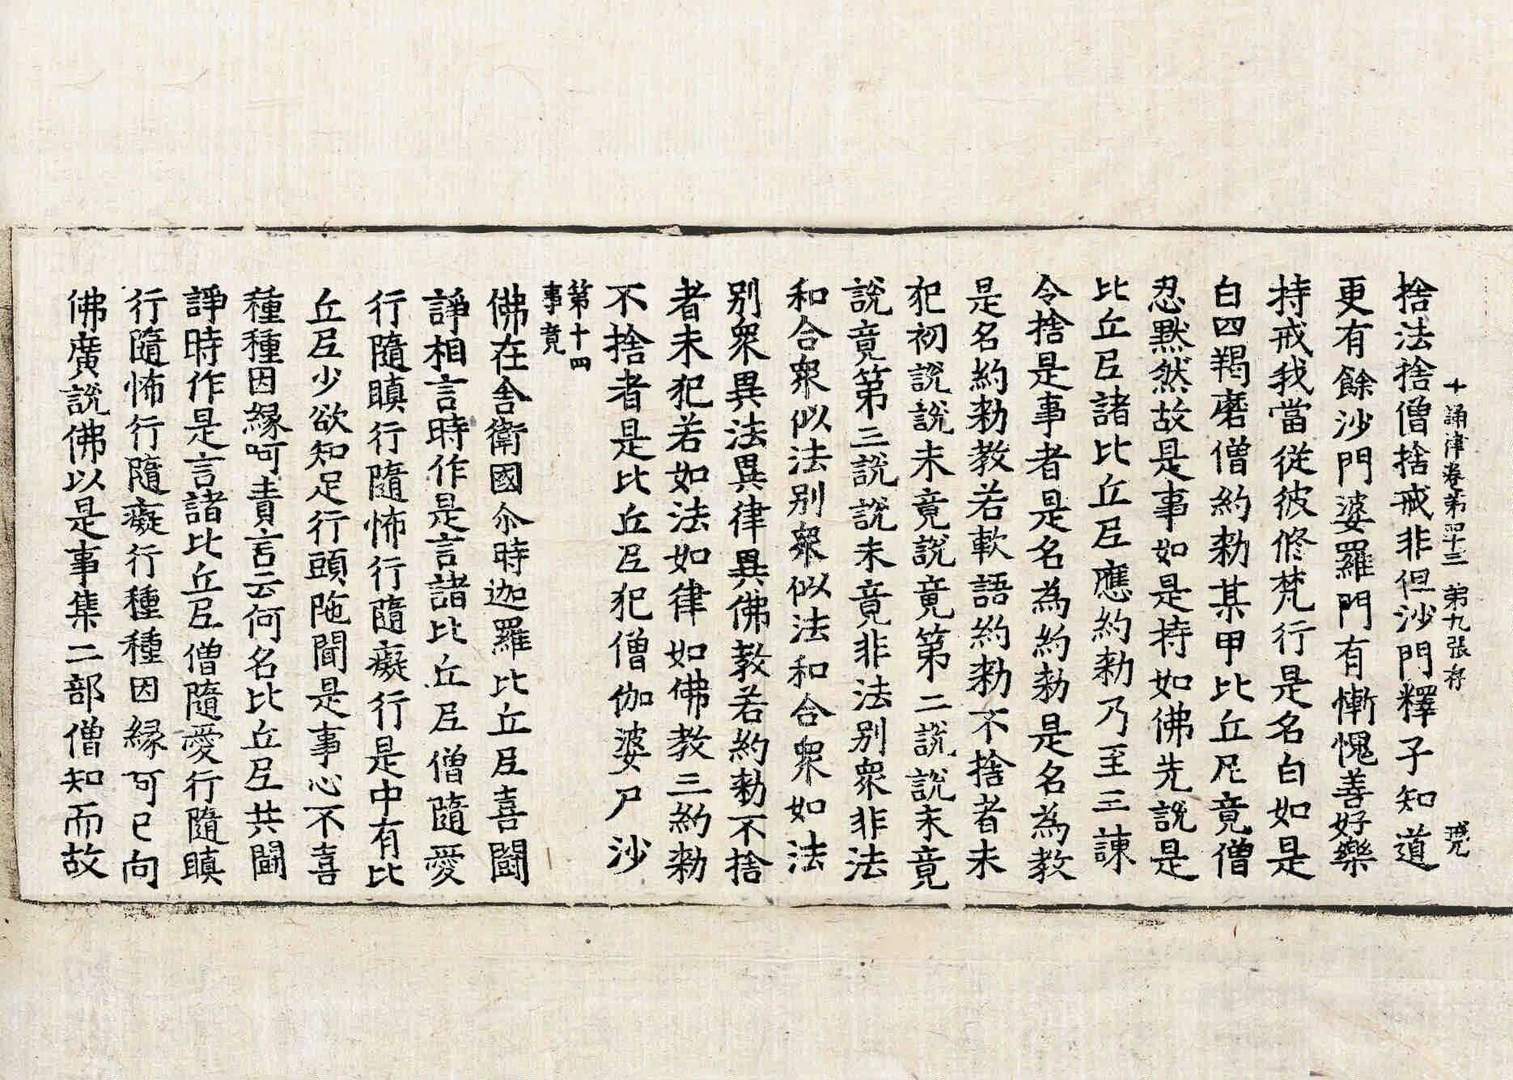 十誦律卷第四十三 第九張 存
捨法捨僧捨戒非但沙門釋子知道
更有餘沙門婆羅門有慚愧善好樂
持戒我當從彼修梵行是名白如是
白四羯磨僧約勑某甲比丘尼竟僧
忍黙然故是事如是持如佛先說是
比丘尼諸比丘尼應約勑乃至三諫
令捨是事者是名為約勑是名為教
是名約勑教若軟語約勑不捨者未
犯初說說未竟說竟第二說說未竟
說竟第三說說未竟非法別衆非法
和合衆似法別衆似法和合衆如法
別衆異法異律異佛教若約勑不捨
者未犯若如法如律如佛教三約勑
不捨者是比丘尼犯僧伽婆尸沙
第十四
事竟
佛在舍衛國尒時迦羅比丘尼喜鬪
諍相言時作是言諸比丘尼僧隨愛
行隨瞋行隨怖行隨癡行是中有比
丘尼少欲知足行頭陁聞是事心不喜
種種因緣呵責言云何名比丘尼共鬪
諍時作是言諸比丘尼僧隨愛行隨瞋
行隨怖行隨癡行種種因緣呵已向
佛廣說佛以是事集二部僧知而故